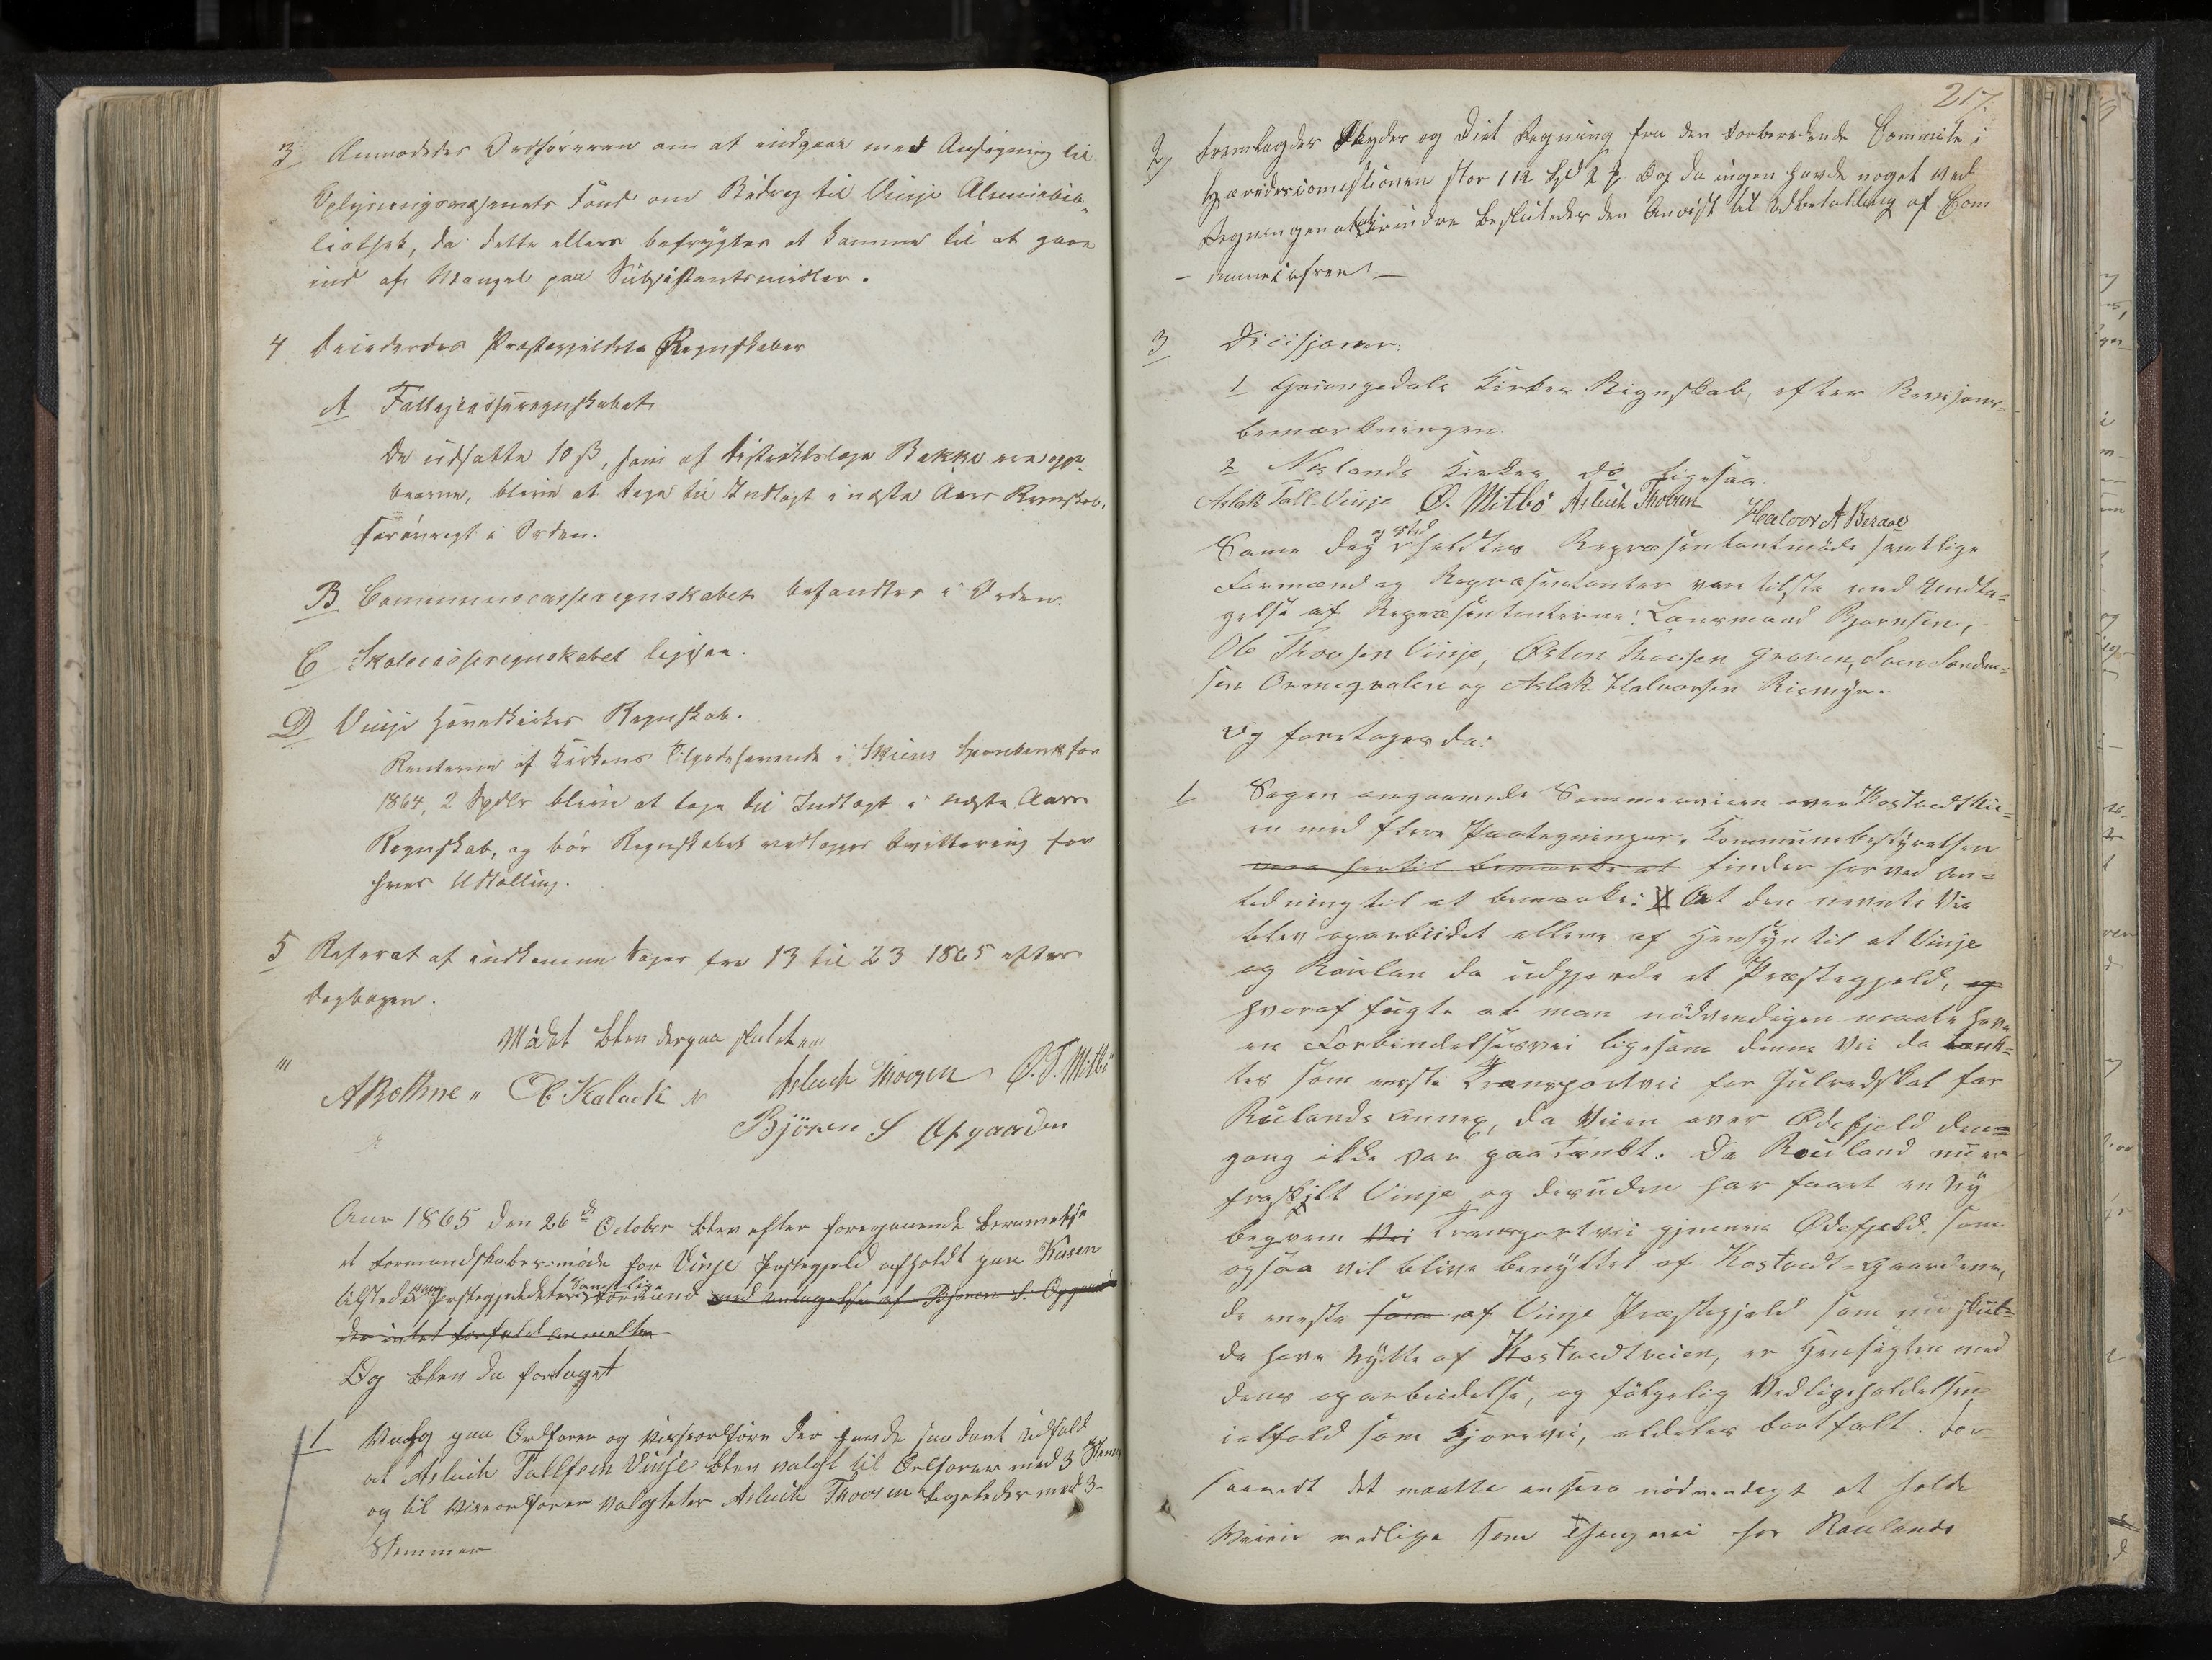 3 Anmodedes Ordføreren om at indgaae med Ansøgning til
Oplysningsvæsenets Fond om Bidrag til Vinje Almuebib-
liothek, da dette ellers befrygtes at komme til at gaae
ind af Mangel paa Subsistentsmidler.
4 Deciderdes Præstegjeldets Regnskaber
A Fattigcasseregnskabet
De udsatte 10 ß, som af Distriktslæge Bakke ere opp-
baarne, blive at tage til Indtægt i næste Aars Regnskab,
forøvrigt i Orden.
B Communecasseregnskabet befandtes i Orden.
C Skolecasseregnskabet ligesaa.
D Vinje Hovedkirkes Regnskab.
Renterne af Kirkens Tilgodehavende i Skiens Sparebank for
1864, 2 Spdlr blive at tage til Indtægt i næste Aars
Regnskab, og bør Regnskabet vedlægges Qvittering for
hver Udtælling.
5 Referat af indkomne Sager fra 13 til 23 1865 efter
Dagbogen.
Mødet blev derpaa sluttet
A Bothne " O Kalack Aslach Thovsen Ø. T. Mitbö
Björen S Opgaarden
Aar 1865 den 26de October blev efter foregaaende berammelse
et formandskabs-møde for Vinje Prestegjeld afholdt paa Kaasen
tilstede var Prestegjeldets samtlige Formænd med undtagelse af Bjøren S. Opgaard
der intet forfald anmeldte
Og blev da fortaget
1 Valg paa Ordfører og Viseordfører der havde saadant Udfald
at Aslach Tallfsen Vinje blev valgt til Ordfører med 3 Stemmer
og til Viseordfører valgtes Aslach Thovsen ligeledes med 3-
Stemmer
217.
2, Fremlagdes Skyds og Diæt Regning fra den Forberedende Commite i
stor 112 Spd 2 ß. Dog da ingen havde noget ved
Regningen at erindre besluttedes den Anvist til udbetalling af Com
- munecassen -
3 Decisjoner.
1 Grungedals Kirkes Regnskab, efter Revisjons-
bemærkningen.
2 Neslands Kirkes do Ligesaa.
Aslak Tall. Vinje Ø. Mitbö Aslach Thovsen Halvor A Beraae
Same Dag og sted holdtes Repræsentantmøde samtlige
Formænd og Repræsentanter vare tilste med Undta-
gelse af Repræsentanterne: Lansmand Bjørnsen,
Ole Thovsen Vinje, Østen Thovsen Graven, Sven Sondre-
sen Ormegralen og Aslak Halvorsen Kiemyr.
Og foretoges da:
1 Sagen angaaende Sommerveien over Kostvedtkii-
en med flere Paategninger. Kommunebestyrelsen
maa hertil bemærke at finder herved An-
ledning til at bemærke: At den nævnte Vei
blev oparbeidet allene af Hensyn til at Vinje
og Raulan da udgjorde et Præstegjeld, og
hvoraf fugte at man nödvendigen maate have
en Forbindelsesvei ligesom denne Vei da tænk-
tes som neste Transportvei for Julvedskat for
Raulands Annex, da Veien over Ødefjeld den-
gang ikke var paatænkt. Da Rauland nu er
fraskilt Vinje og desuden har faaet en ny
beqvem Vei Transportvei gjennem Ødefjeld, som
ogsaa vil blive benyttet af Kostvedt-Gaardene,
de eneste som af Vinje Præstegjeld som nu skul-
de have Nytte af Kostvedtveien, er Hensigten med
dens oparbeidelse, og følgelig Vedligeholdelsen
ialfald som Kjørevei, aldeles bortfalt. For
saavidt det maatte ansees nödvendigt at holde
Veien vedlige som Gangvei for Raulands